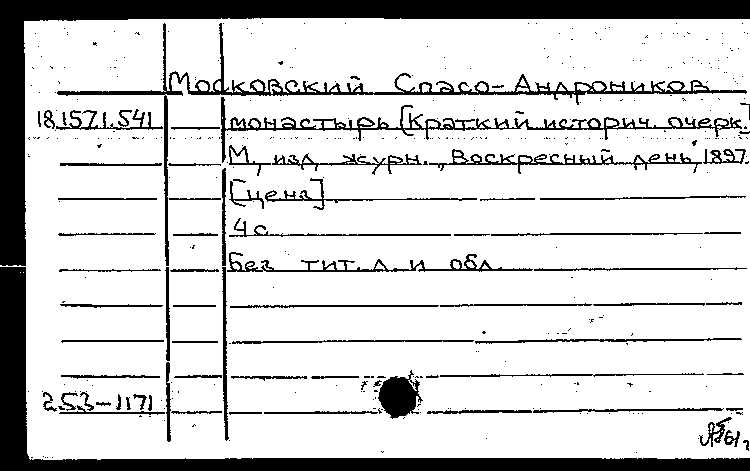 Московский Спасо-Андроников
18.157.1.541 монастырь [Краткий историч. очерк]
М., изд. журн. „Воскресный день", 1897.
[цена].
4 с.
Без тит. л. и обл.
253-1171